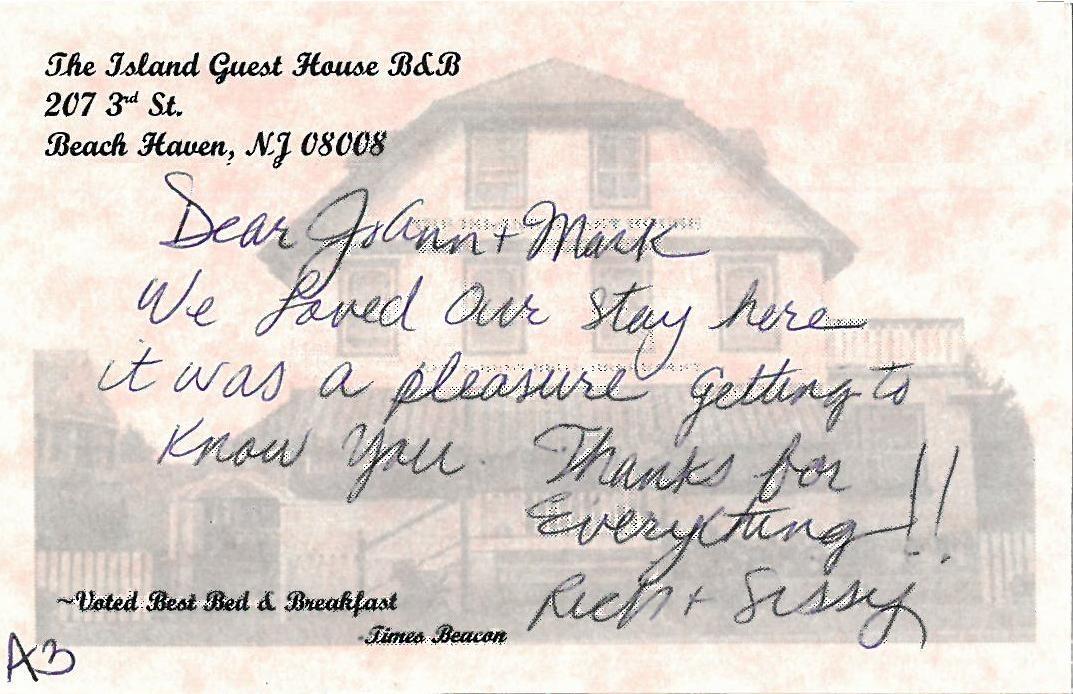 The Island Guest House B&B
207 3rd St.
Beach Haven, NJ 08008
Dear JoAnn + Mark
We Loved Our Stay here
it was a pleasure getting to
Know You. Thanks for
Everything!!
Rich + Sissy
~Voted Best Bed & Breakfast
-Times Beacon
A3